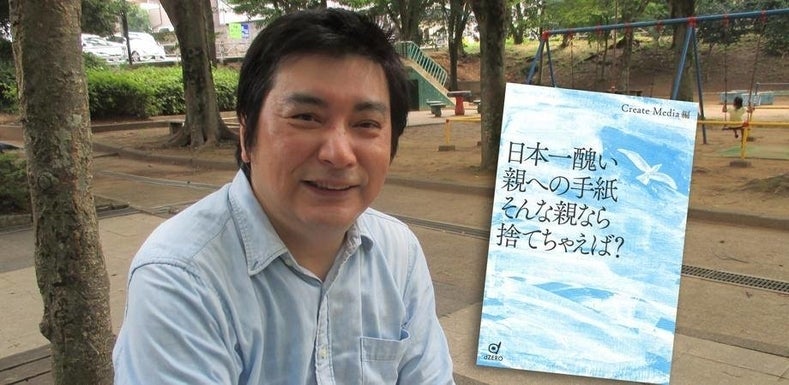 Create Media 編
日本一醜い
親への手紙
そんな親なら
捨てちゃえば？
dZERO